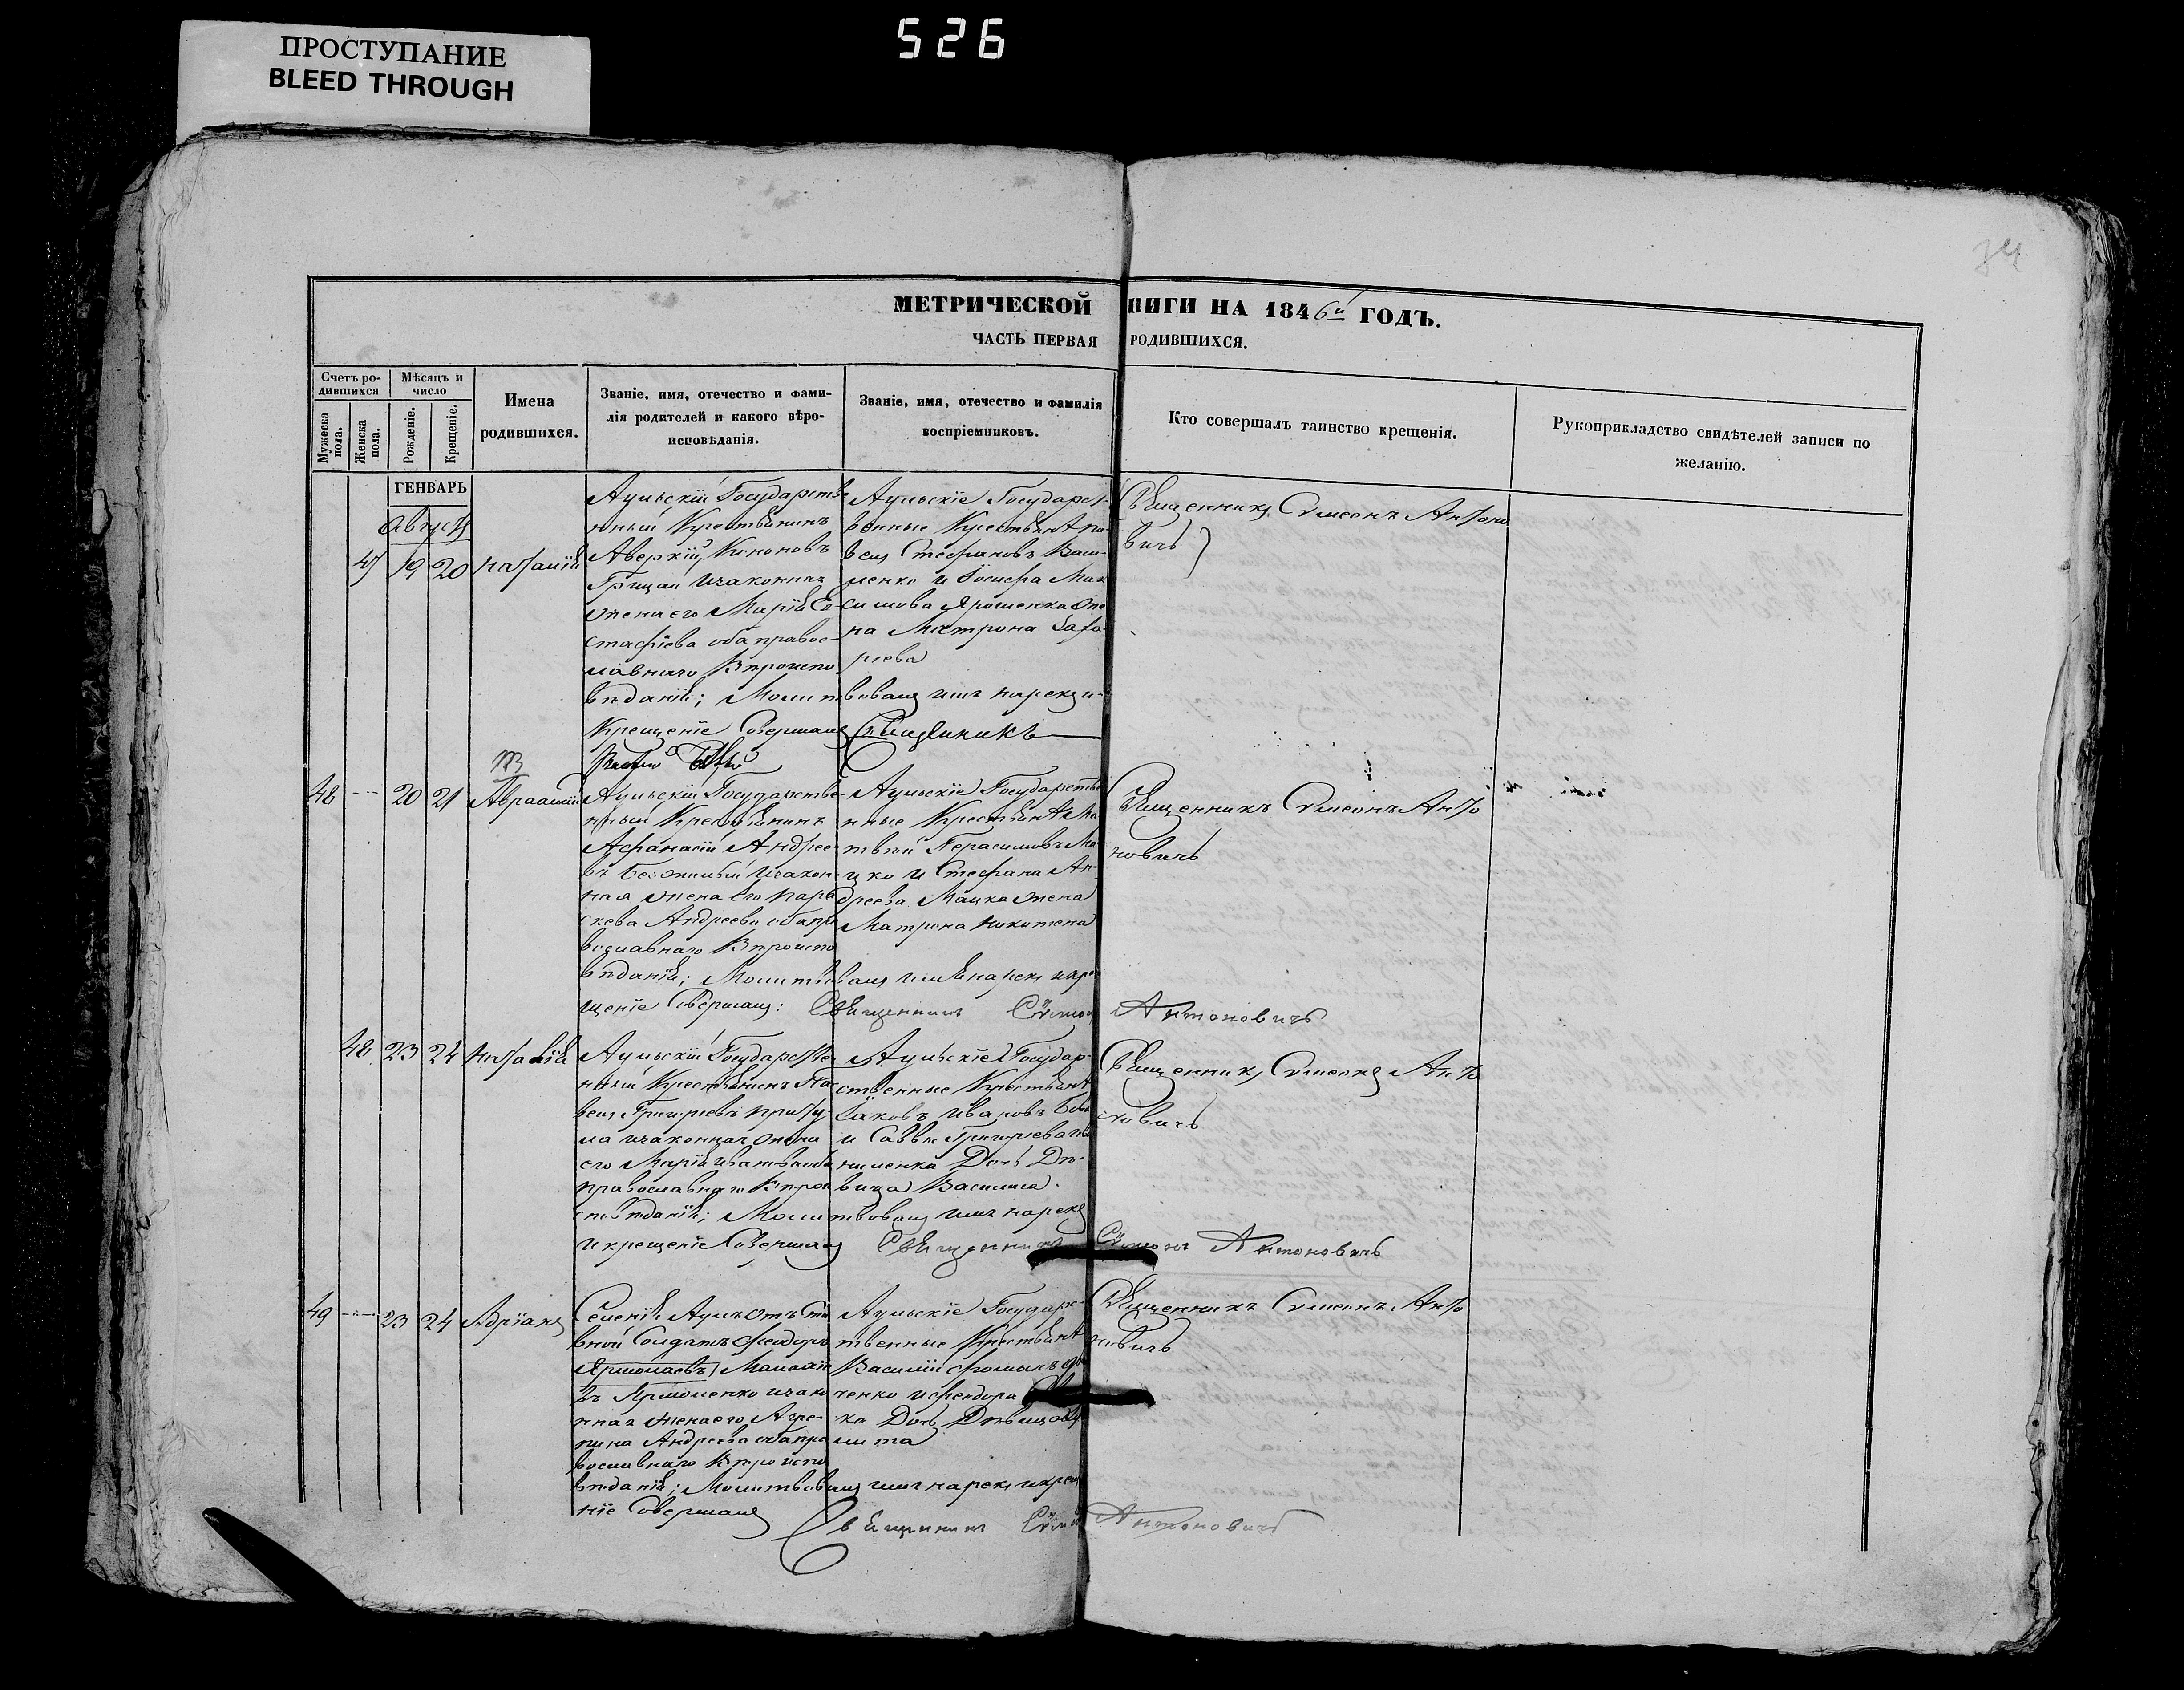 ПРОСТУПАНИЕ
BLEED THROUGH
526
34
МЕТРИЧЕСКОЙ НИГИ НА 1846й ГОДЪ.
ЧАСТЬ ПЕРВАЯ РОДИВШИХСЯ.
Счетъ ро-
дившихся
Мужеска
пола.
Женска
пола.
Мѣсяцъ и
число
Рожденіе.
Крещеніе.
Имена
родившихся.
Званіе, имя, отечество и фами-
лія родителей и какого вѣро-
исповѣданія.
Званіе, имя, отечество и фамилія
воспріемниковъ.
Кто совершалъ таинство крещенія.
Рукоприкладство свидѣтелей записи по
желанію.
ГЕНВАРЬ
Августъ
47 19 20 Наталія
Аульскій Государстве
нный Крестьянинъ
Аверкій Кононовъ
Грицай и законная
жена его Марія Ев-
стафіева оба правос-
лавнаго Вѣроиспо
вѣданія; Молитвовалъ имя нарекъ и
Крещеніе Совершалъ Священникъ
Аульскіе Государст-
венные Крестьяне Па-
велъ Стефановъ Васи-
ленко и Іосифа Мак
симова Ярошенка же
на Матрона Заха-
ріева
Священникъ Симеонъ Антоно
вичъ
48 20 21 Авраамій
Аульскій Государстве-
нный Крестьянинъ
Афанасій Андрее-
въ и закон-
ная жена его Парас
кева Андреева оба пра
вославнаго Вѣроиспо
вѣданія; Молитвовалъ имя нарекъ и кре-
щеніе Совершалъ: Священникъ Симеонъ Антоновичъ
Аульскіе Государстве
нные Крестьяне Ма
твѣй Герасимовъ Ма-
цко и Стефана Ан-
дреева Мацка жена
Матрона
Священникъ Симеонъ Анто
новичъ
48 23 24 Наталія
Аульскій Государстве-
нный Крестьянинъ Па
велъ Григорьевъ
ла и законная жена
его Марія Иванова оба
православнаго Вѣрои
сповѣданія; Молитвовалъ имя нарекъ
и крещеніе Совершалъ Священникъ Симеонъ Антоновичъ
Аульскіе Государ-
ственные Крестьяне
Іаковъ Ивановъ
и Саввы Григорьева
ниленка Дочь Дѣ-
вица Василиса.
Священникъ Симеонъ Анто
новичъ
49 23 24 Адріанъ
Селенія Аулъ Отъ Ста
вной Солдатъ Феодоръ
Ермолаевъ
Ярмоленко и зако
нная жена его Агре-
пина Андреева оба пра
вославнаго Вѣроиспо
вѣданія; Молитвовалъ имя нарекъ и креще
ніе Совершалъ Священникъ Симеонъ Антоновичъ
Аульскіе Государс-
твенные Крестьяне
Василій
ченко и Феодора
ка Дочь Дѣвица
Священникъ Симеонъ Анто
новичъ